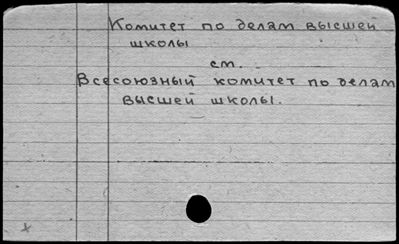 Комитет по делам высшей
школы
см.
Всесоюзный комитет по делам
высшей школы.
x